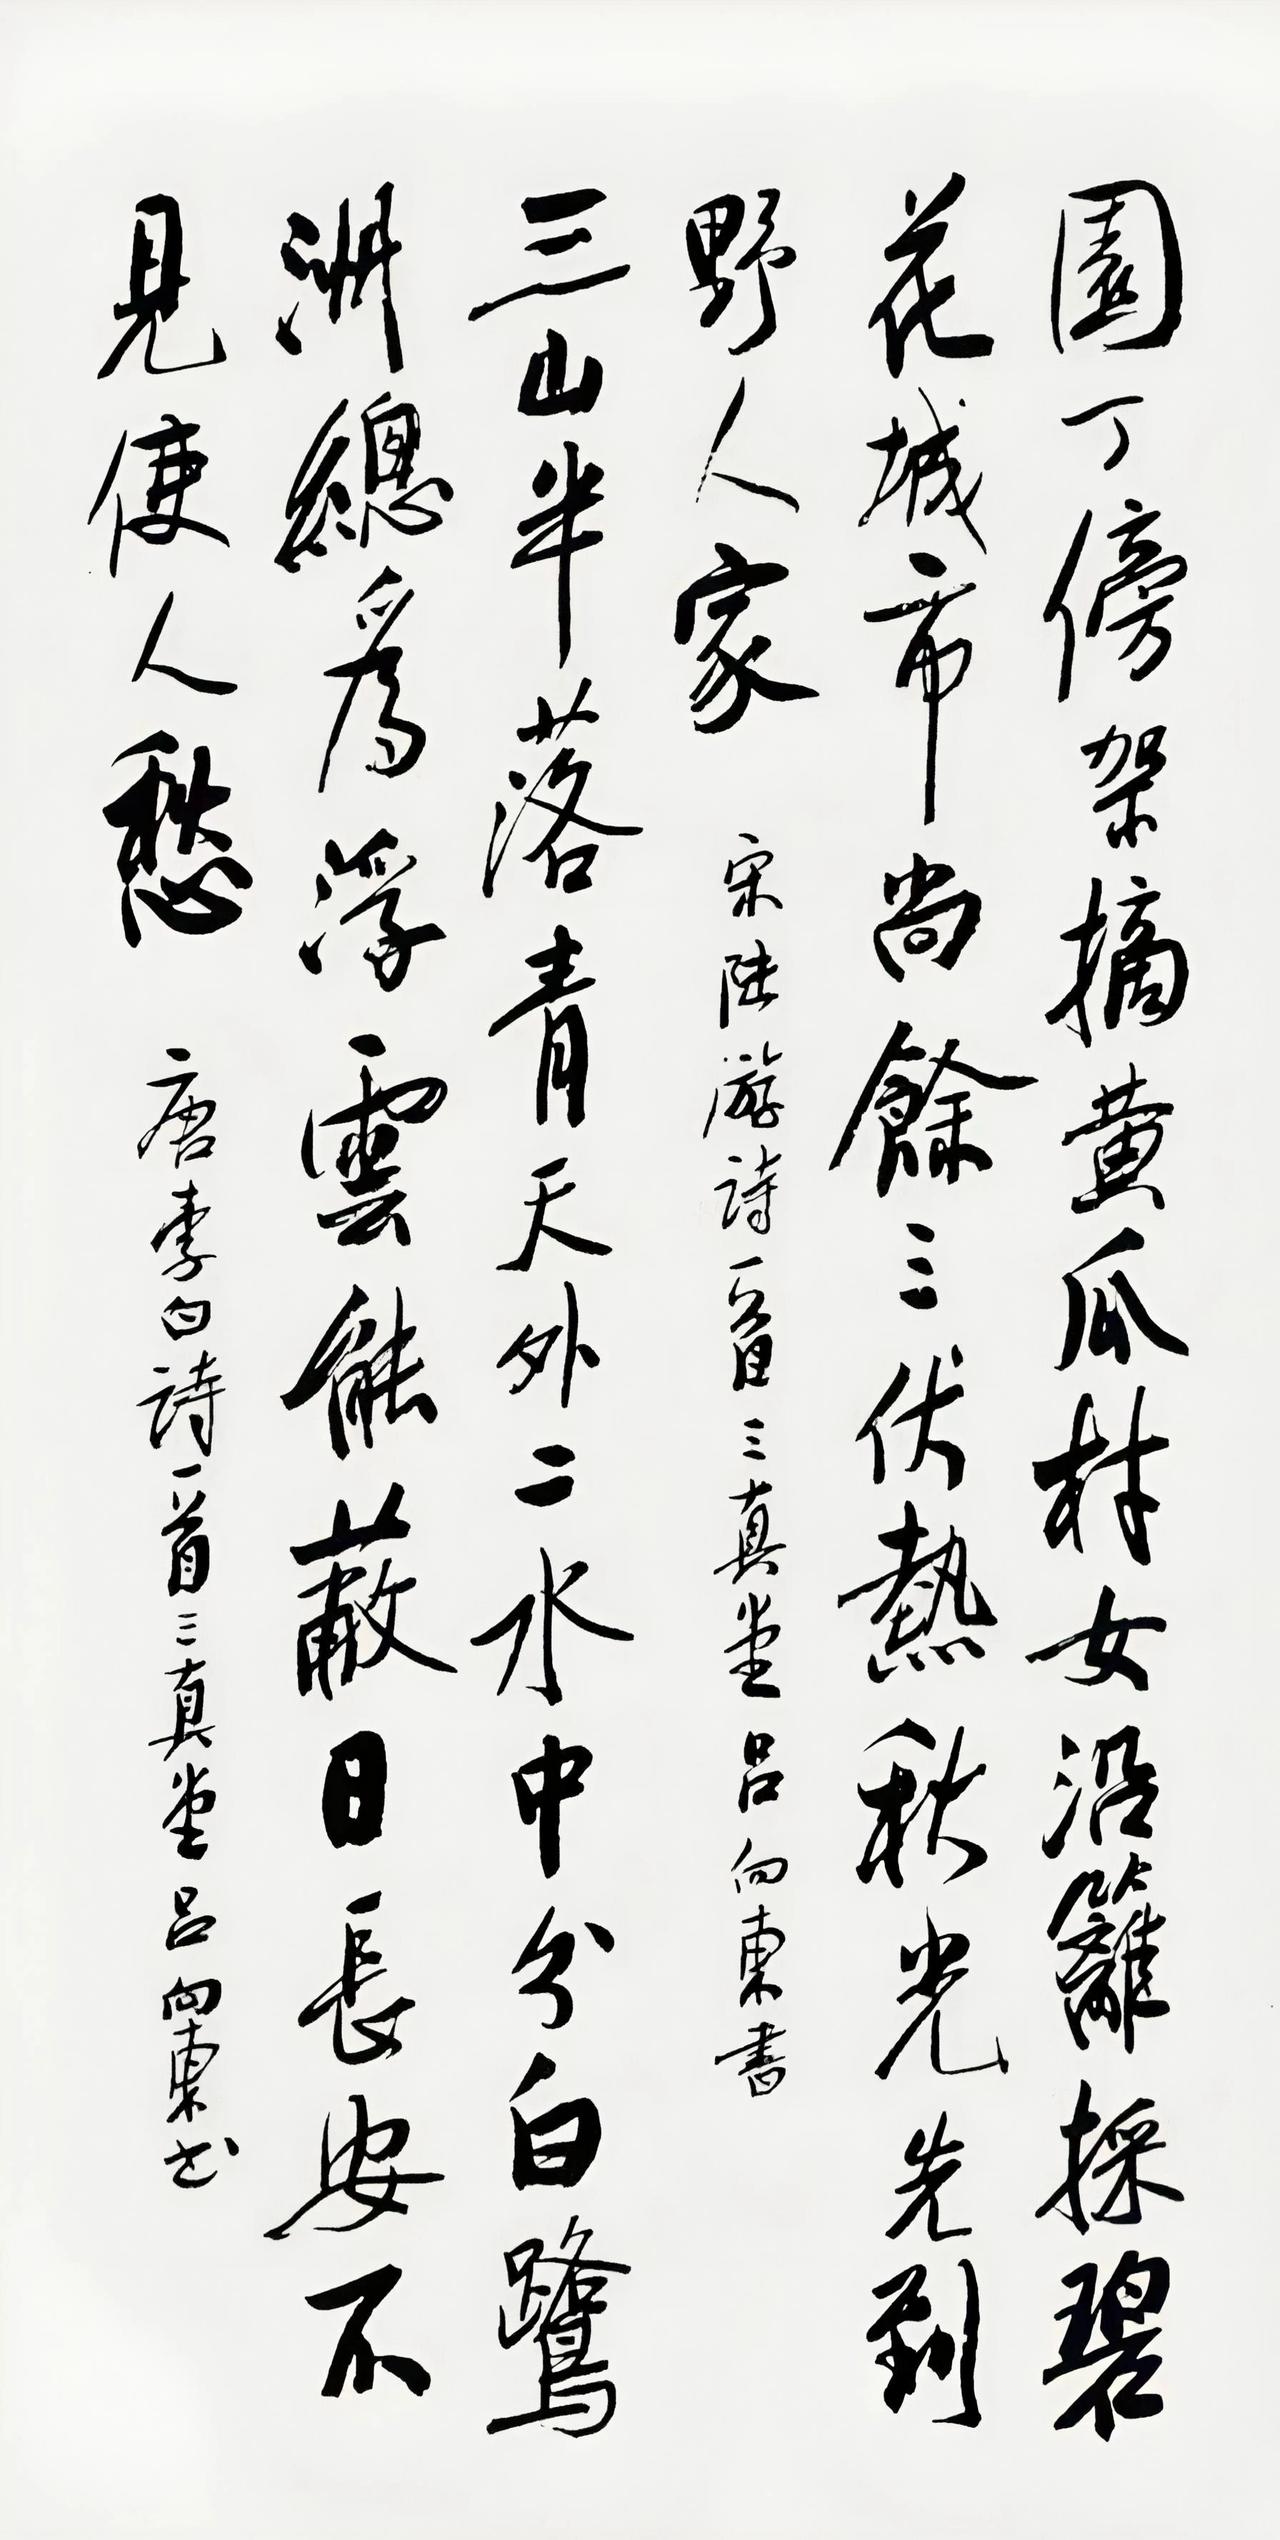 園丁傍架摘黄瓜村女沿籬採碧
花城市尚餘三伏熱秋光先到
野人家
宋陸游詩一首三真堂吕向東書
三山半落青天外二水中分白鷺
洲總爲浮雲能蔽日長安不
見使人愁
唐李白詩一首三真堂吕向東书